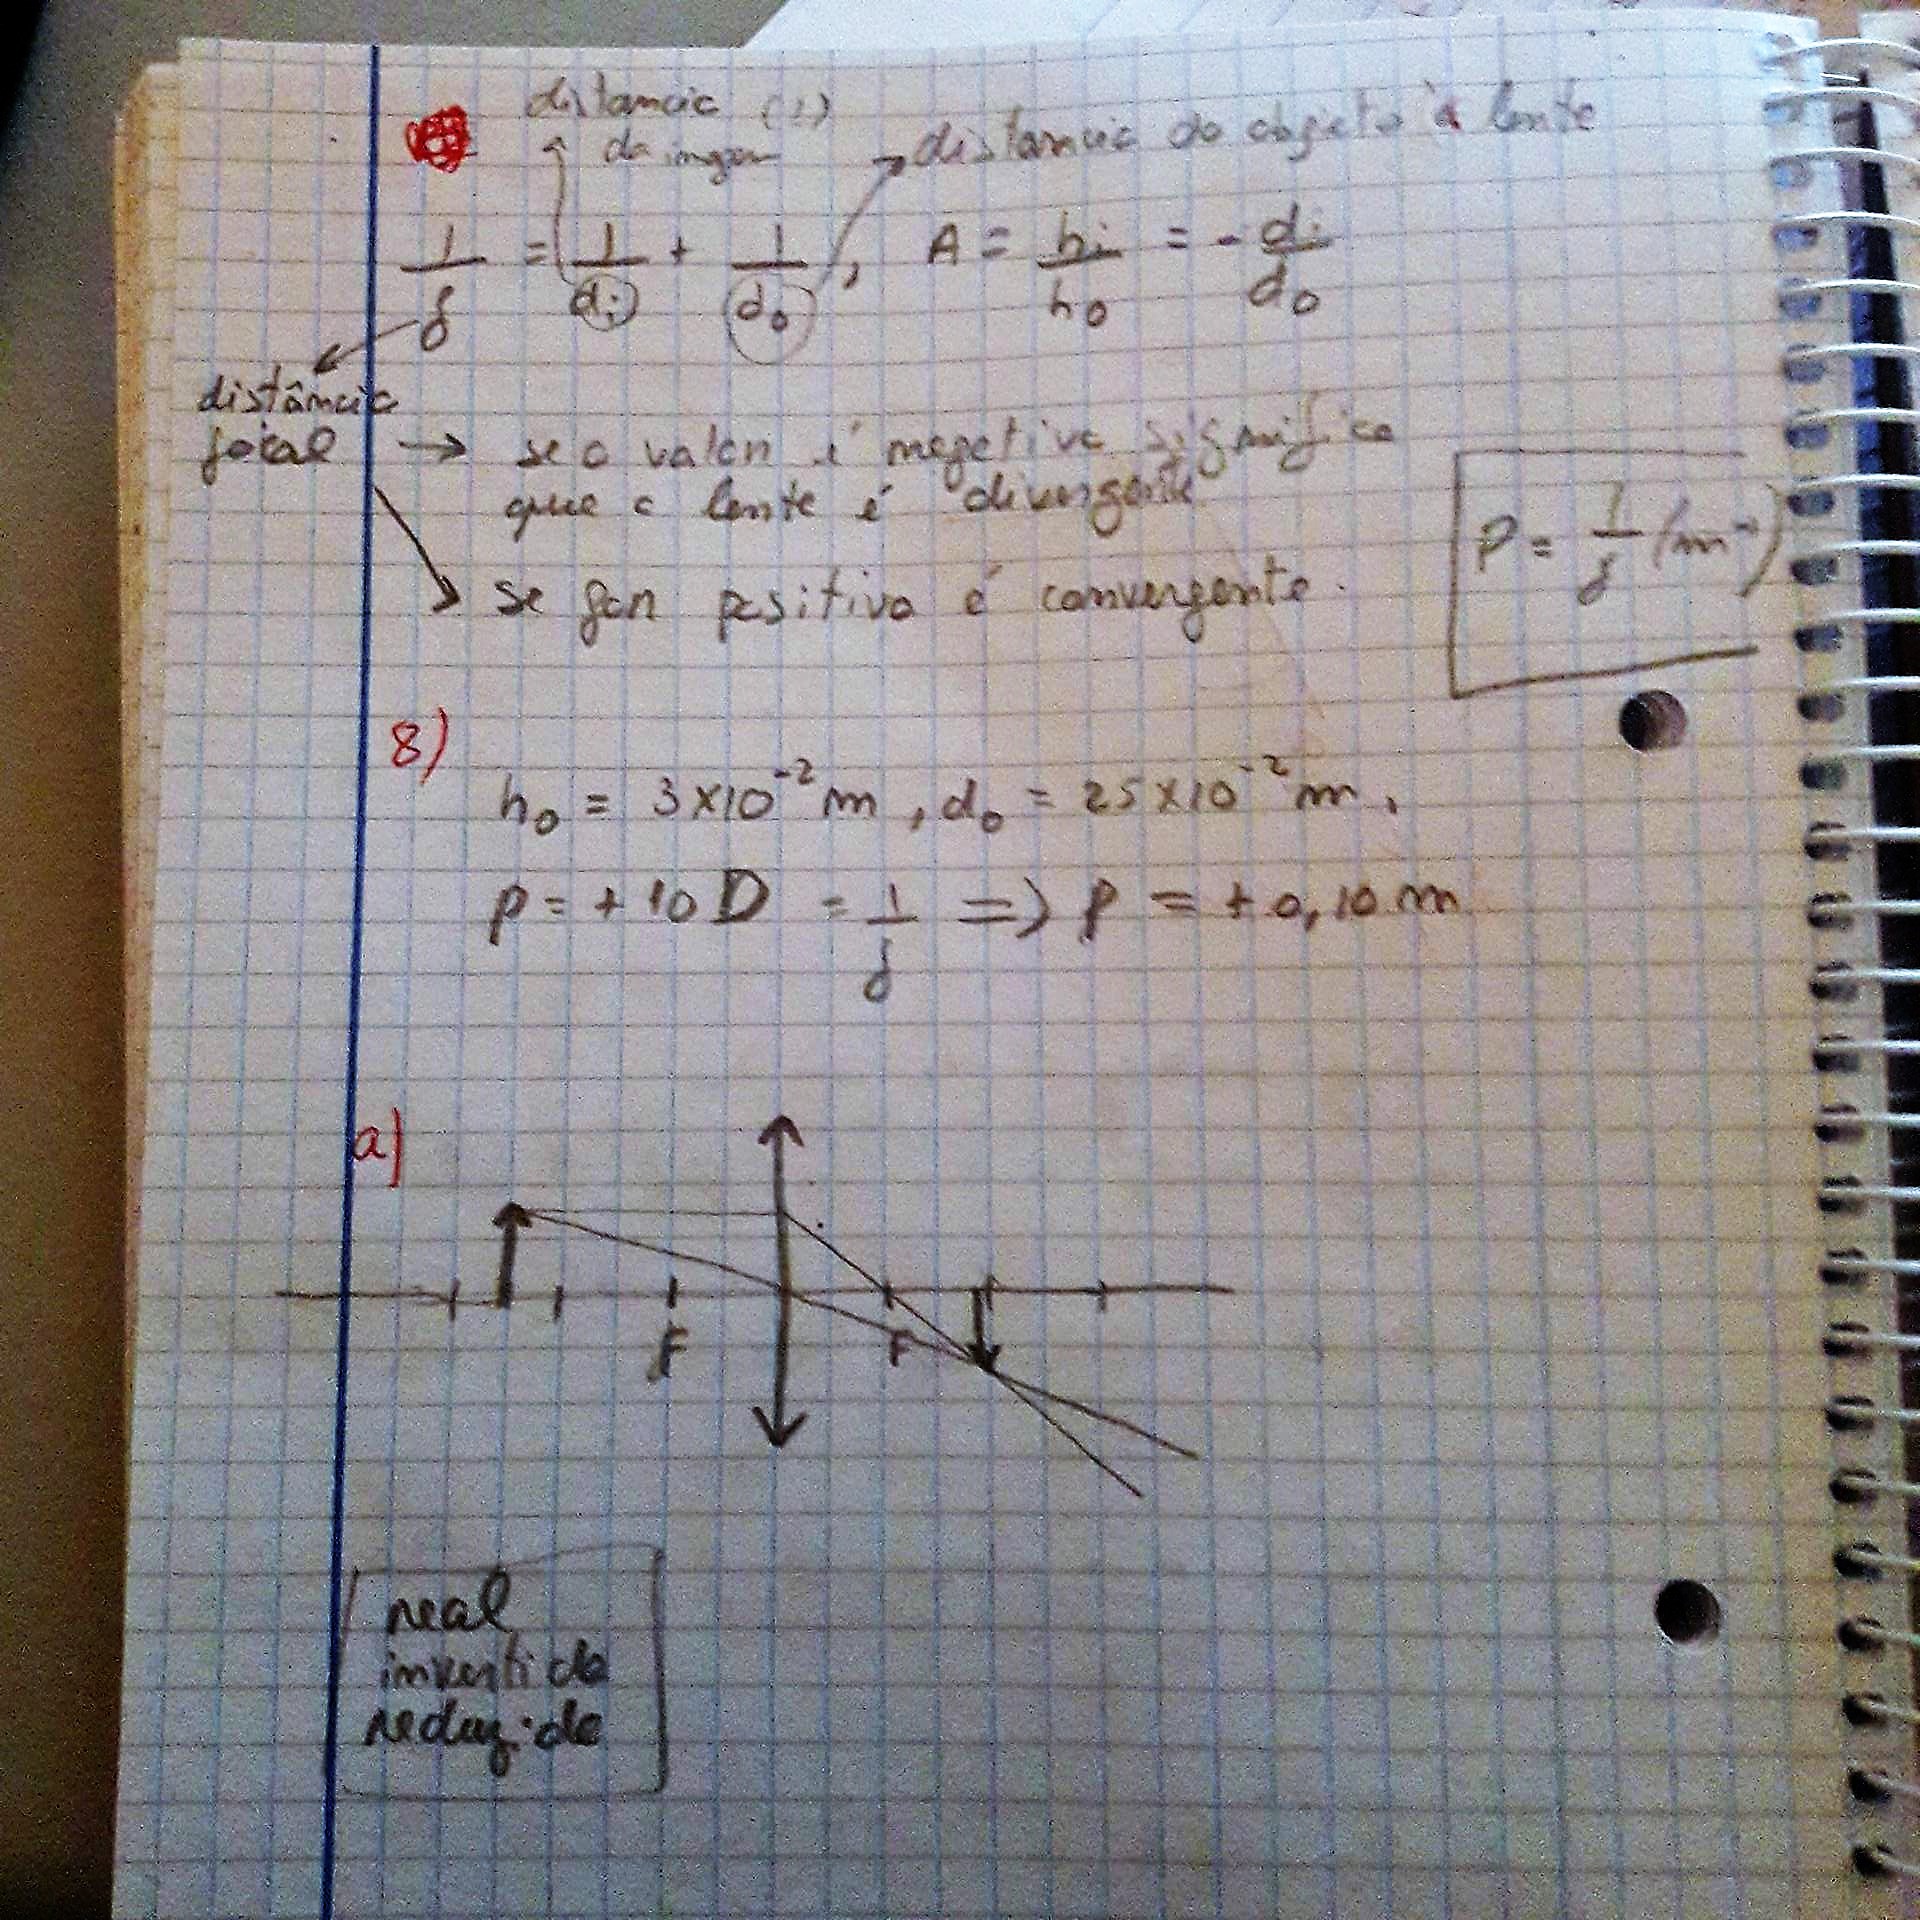 distancia (1)
da imagem
distancia do objeto à lente
1/f = 1/di + 1/do , A = hi/ho = - di/do
distância
focal → se o valor é negativo significa
que a lente é divergente
se for positivo é convergente.
P = 1/f (m⁻¹)
8)
ho = 3x10⁻² m , do = 25x10⁻² m ,
p = + 10 D = 1/f => p = + 0,10 m
a)
F F
real
invertida
reduzida